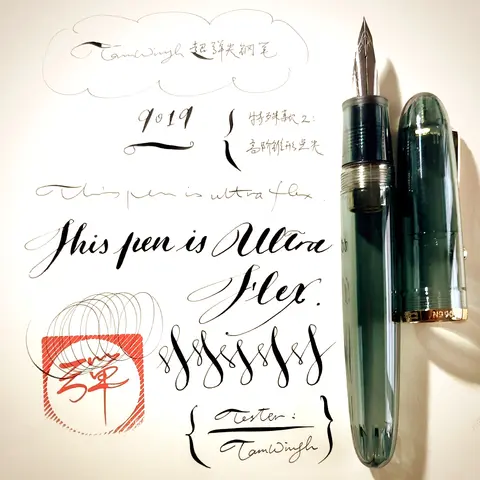 TamWingh 超弹尖钢笔
9019
特殊款2:
This pen is ultra flex.
This pen is Ultra
Flex.
彈
Tester:
TamWingh